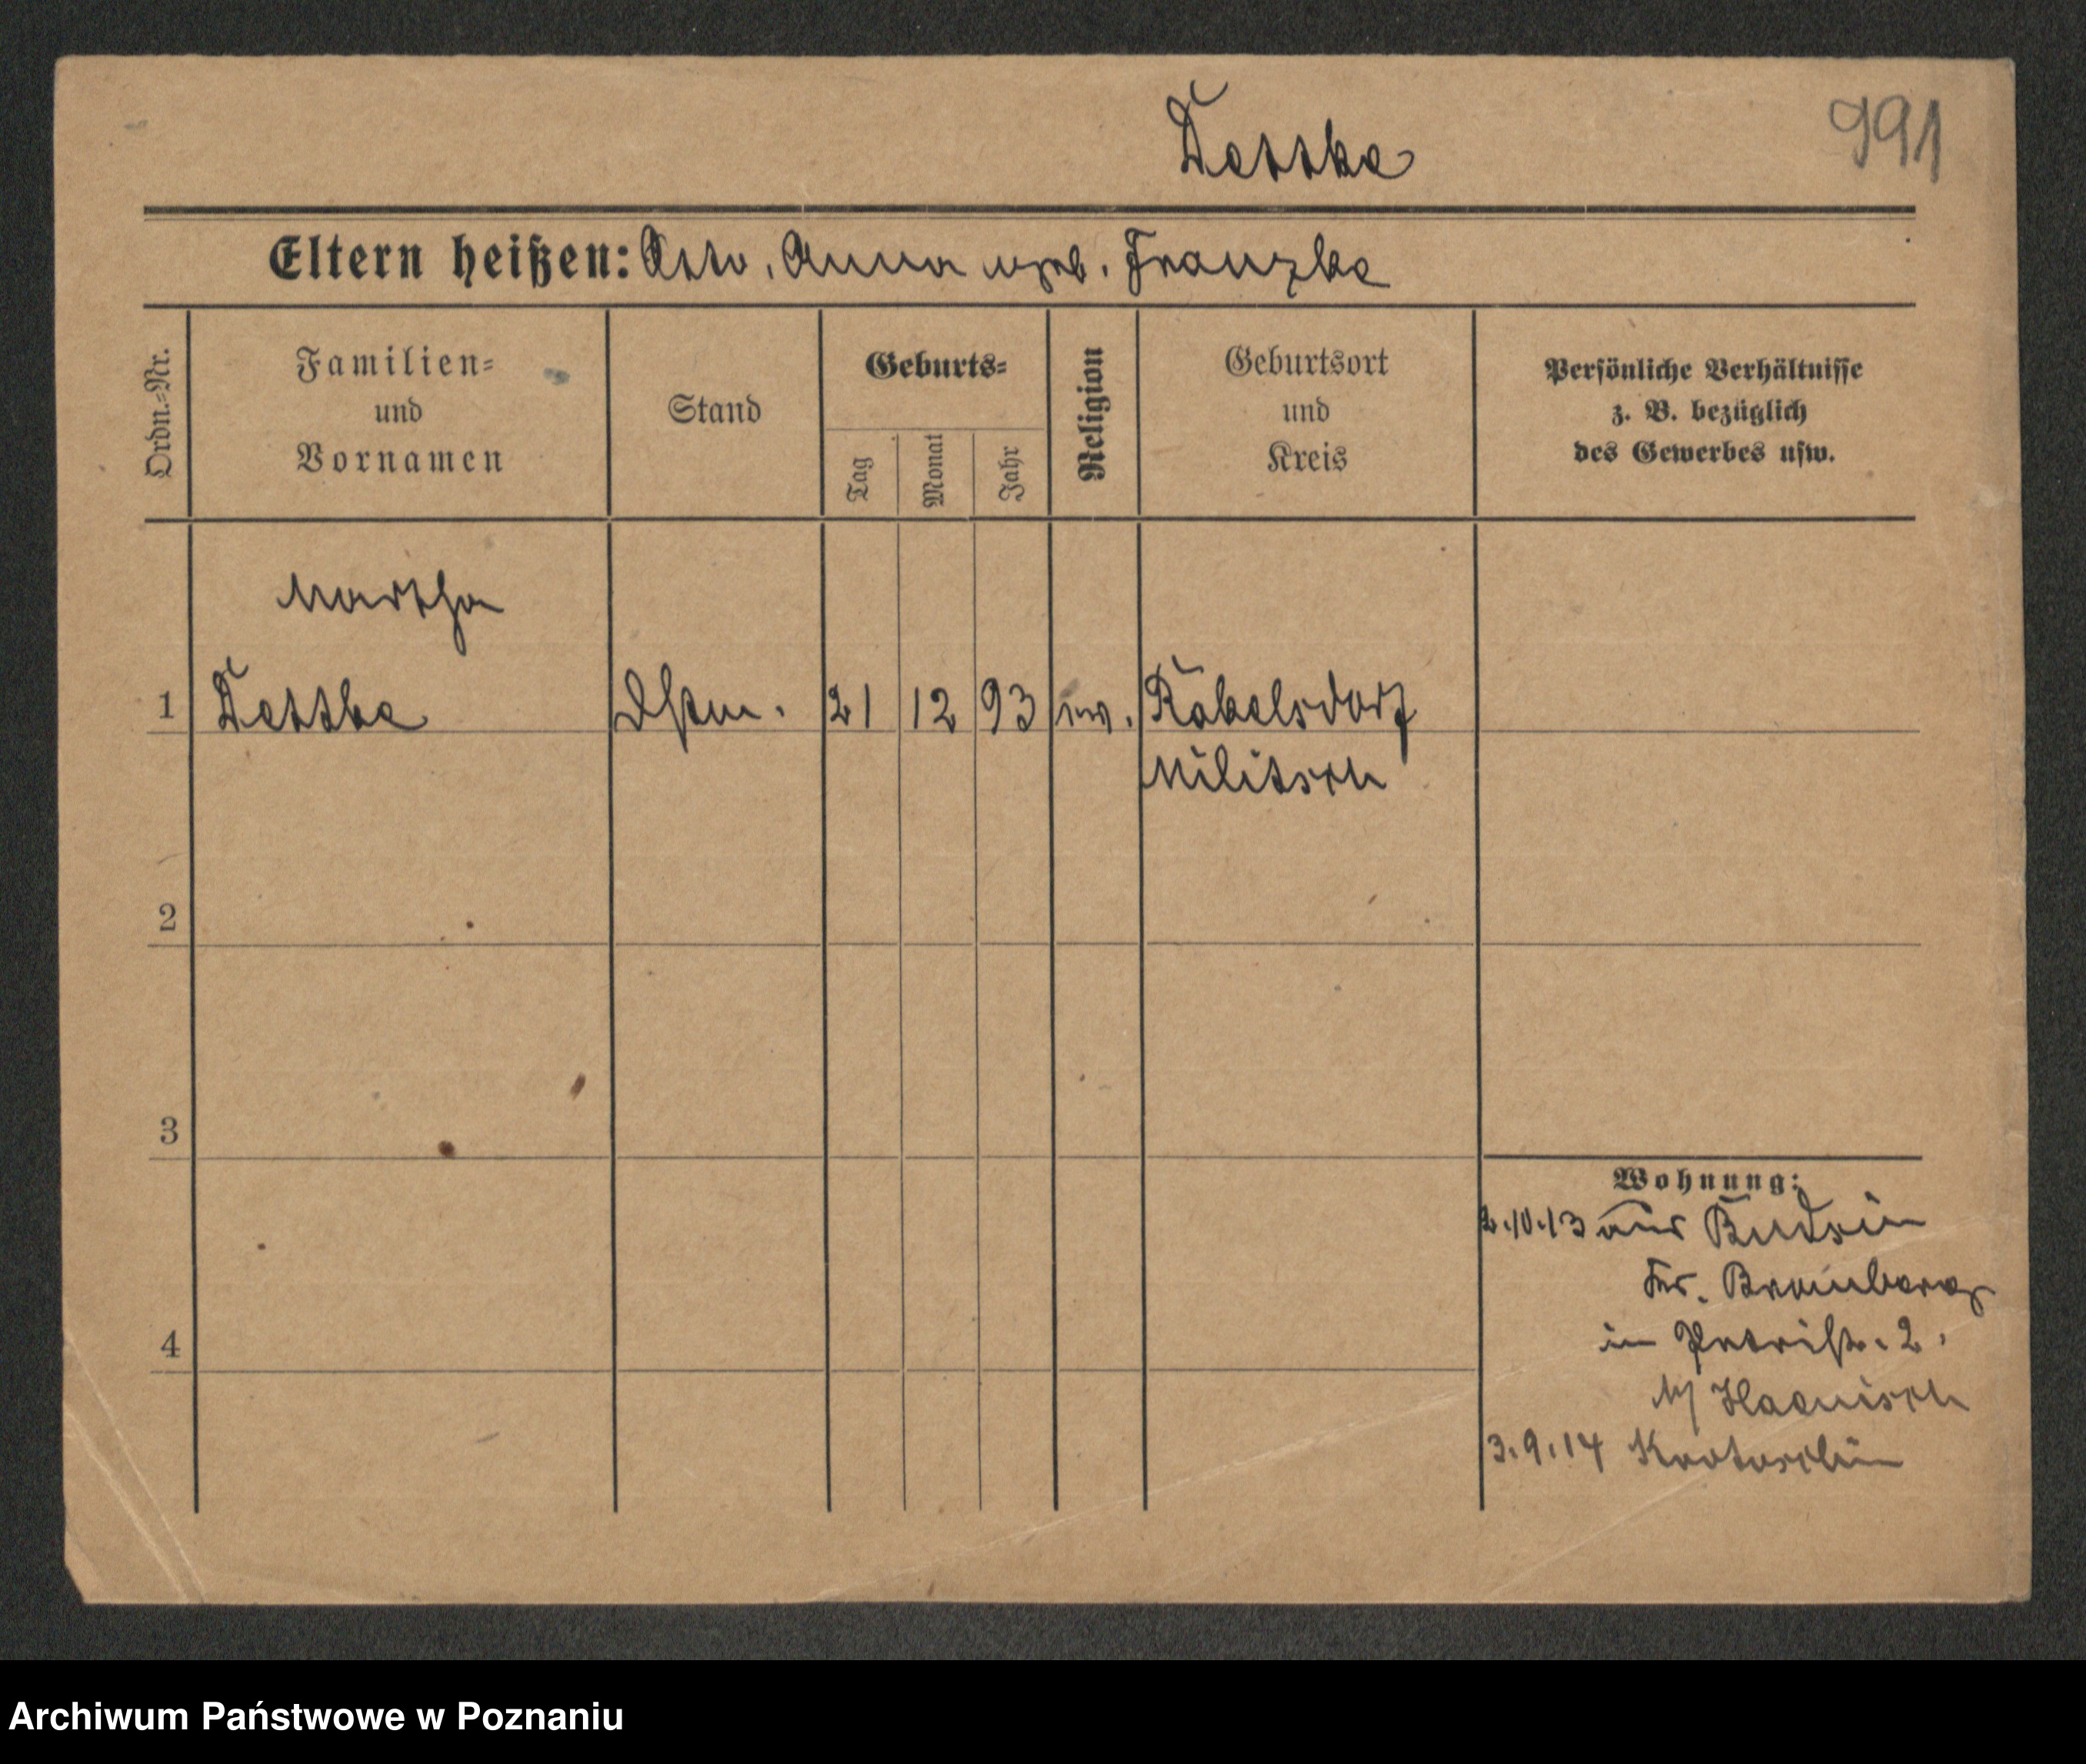 Dettke
991
Eltern heißen: Otto, Anna geb. Franzke
Ordn.-Nr.
Familien-
und
Vornamen
Stand
Geburts-
Tag
Monat
Jahr
Religion
Geburtsort
und
Kreis
Persönliche Verhältnisse
z. B. bezüglich
des Gewerbes usw.
Martha
1 Dettke 21 12 93 ev. Kobelsdorf
Militsch
2
3
4
Wohnung:
2.10.13 aus Budsin
Kr. Bromberg
in Petristr. 2.
b/ Haenisch
3.9.14 Krotoschin
Archiwum Państwowe w Poznaniu